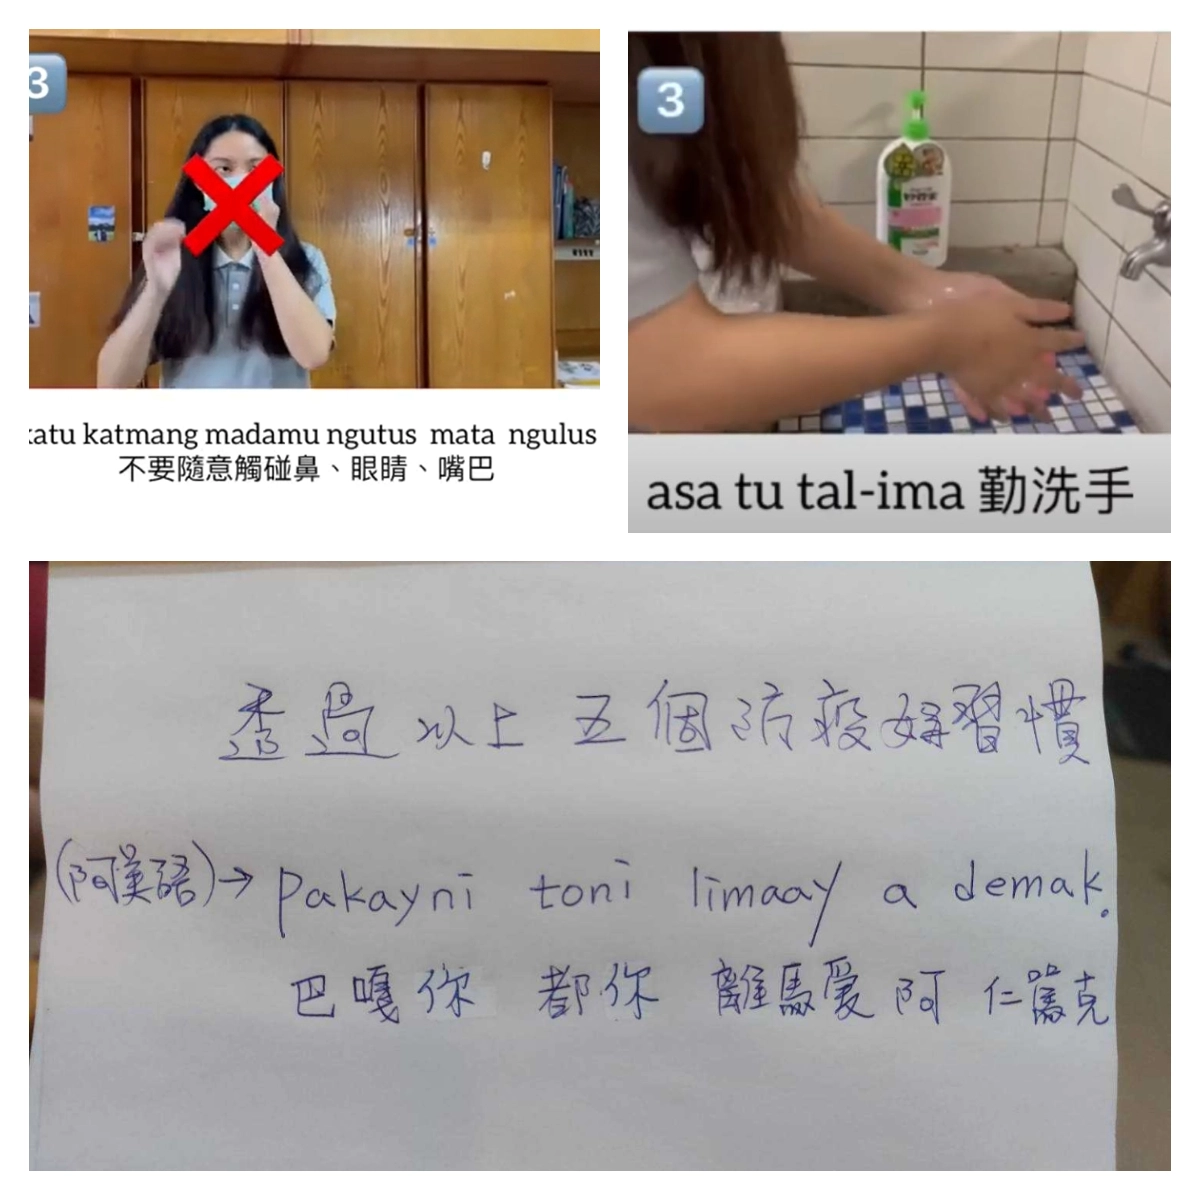 3
katu katmang madamu ngutus mata ngulus
不要隨意觸碰鼻、眼睛、嘴巴
3
asa tu tal-ima 勤洗手
透過以上五個防疫好習慣
(阿漢語)→ pakayni toni limaay a demak.
巴嘎你 都你 離馬愛 阿